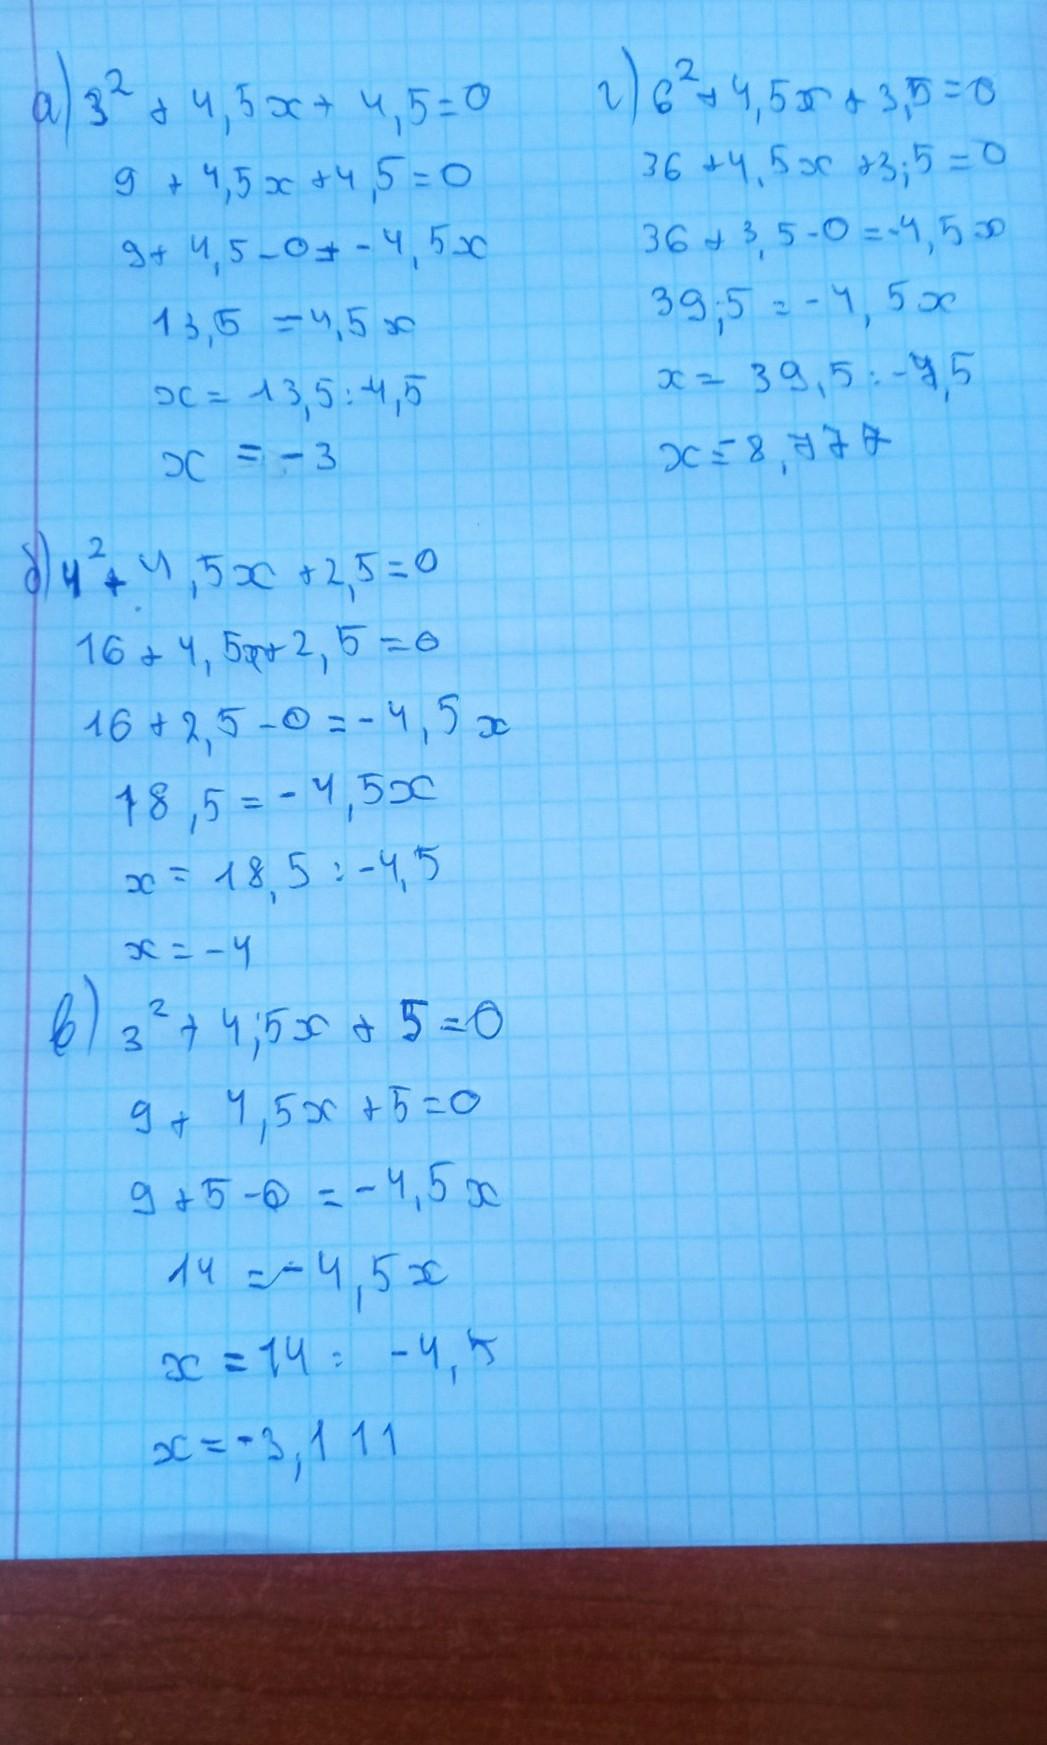 а) 3² + 4,5x + 4,5 = 0
9 + 4,5x + 4,5 = 0
9 + 4,5 - 0 = - 4,5x
13,5 = -4,5x
x = 13,5 : -4,5
x = - 3
б) 4² + 4,5x + 2,5 = 0
16 + 4,5x + 2,5 = 0
16 + 2,5 - 0 = - 4,5x
18,5 = - 4,5x
x = 18,5 : -4,5
x = - 4
в) 3² + 4,5x + 5 = 0
9 + 4,5x + 5 = 0
9 + 5 - 0 = - 4,5x
14 = - 4,5x
x = 14 : -4,5
x = -3,111
г) 6² + 4,5x + 3,5 = 0
36 + 4,5x + 3,5 = 0
36 + 3,5 - 0 = -4,5x
39,5 = - 4,5x
x = 39,5 : -4,5
x = -8,777